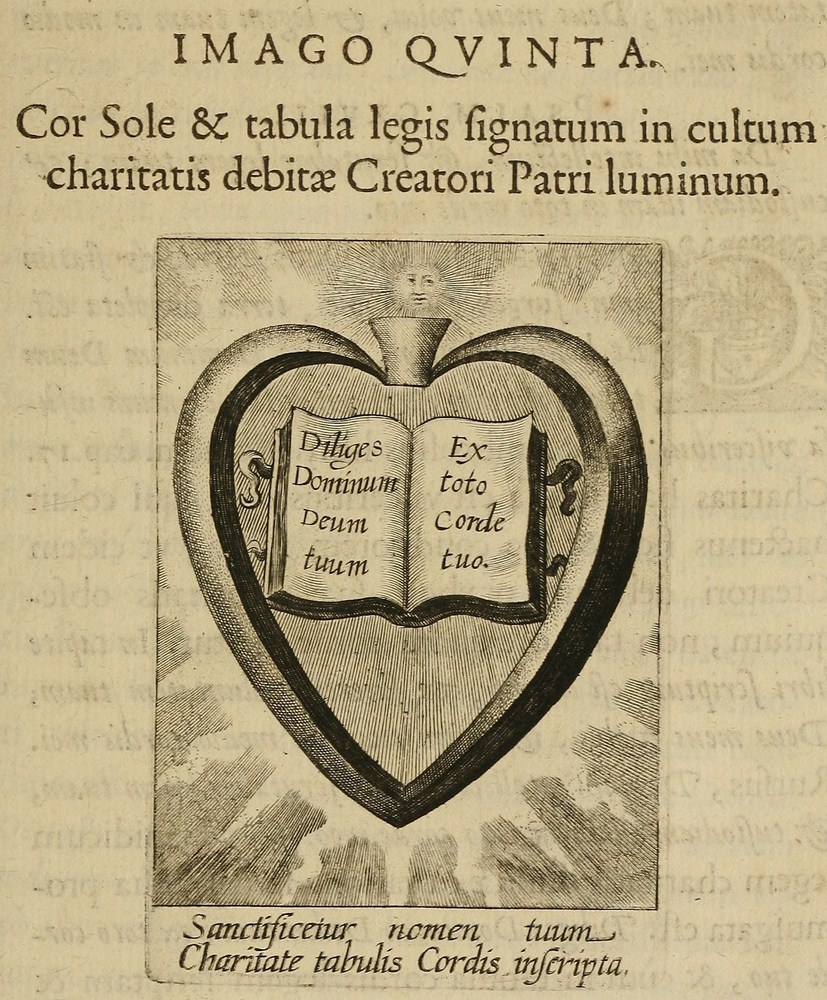 IMAGO QVINTA.
Cor Sole & tabula legis ſignatum in cultum
charitatis debitæ Creatori Patri luminum.
Diliges
Dominum
Deum
tuum
Ex
toto
Corde
tuo.
Sanctificetur nomen tuum
Charitate tabulis Cordis inſcripta.